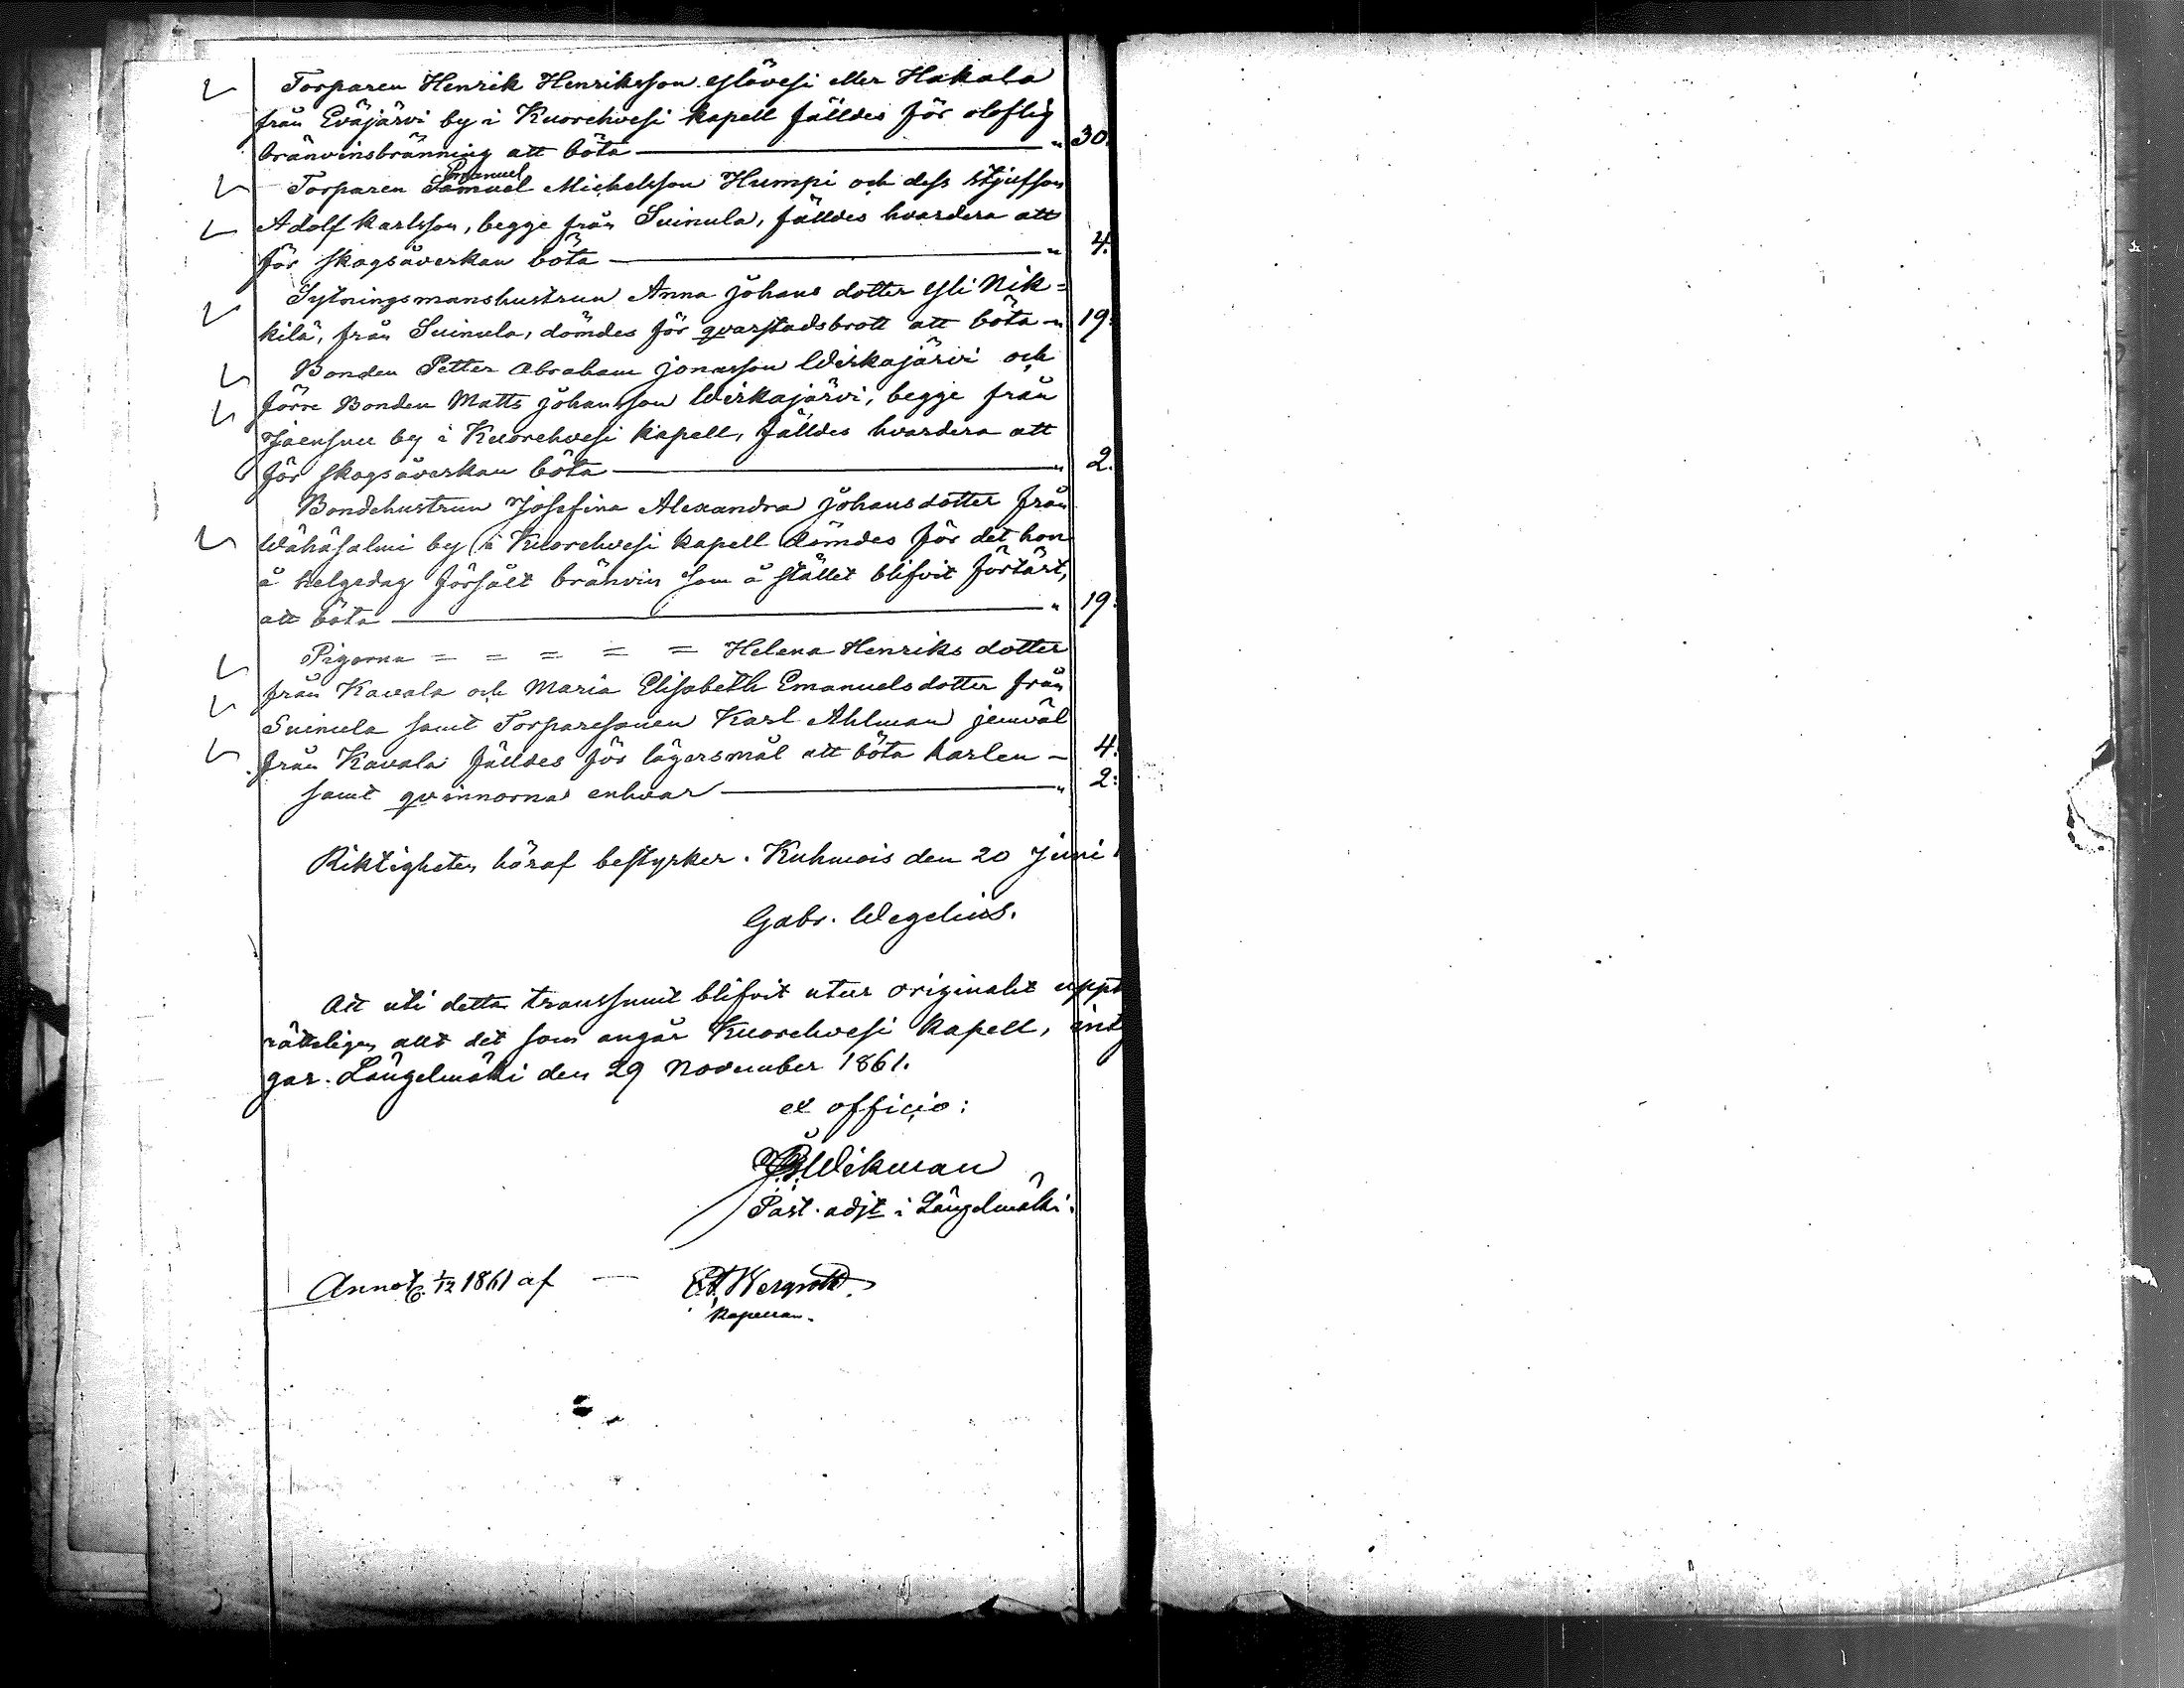 Torparen Henrik Henriksson Ylövesi eller Hakala
från Eväjärvi by i Kuorehvesi kapell fälldes för oloflig
bränvinsbränning att böta — " 30.
Emanuel
Torparen Samuel Michelsson Humpi och dess Stjufson
Adolf Karlsson, begge från Suinula, fälldes hvardera att
för skogsåverkan böta — " 4.
Sytningsmanshustrun Anna Johans dotter Yli Nik=
kilä, från Suinula, dömdes för qvarstadsbrott att böta " 19:
Bonden Petter Abraham Jonasson Wirkajärvi och
förre Bonden Matts Johansson Wirkajärvi, begge från
Joensuu by i Kuorehvesi kapell, fälldes hvardera att
för skogsåverkan böta — " 2.
Bondehustrun Josefina Alexandra Johansdotter från
Wähäsalmi by i Kuorehvesi kapell dömdes för det hon
å helgedag försålt bränvin som å stället blifvit förtärt,
att böta — " 19:
Pigorna = = = = = Helena Henriks dotter
från Kavala och Maria Elisabeth Emanuels dotter från
Suinula samt Torparesonen Karl Ahlman jemväl
från Kavala fälldes för lägersmål att böta karlen — 4:
samt qvinnorna enhvar — " 2:
Riktigheten häraf bestyrker. Kuhmois den 20 Juni
Gabr. Wegelius.
Att uti detta transsumt blifvit utur originalet uppt
rätteligen allt det som angår Kuorehvesi Kapell, inty
gar. Längelmäki den 29 November 1861.
ex officio:
Wikman
Past. adjt i Längelmäki.
Annot. 1/12 1861 af —
Kapellan.